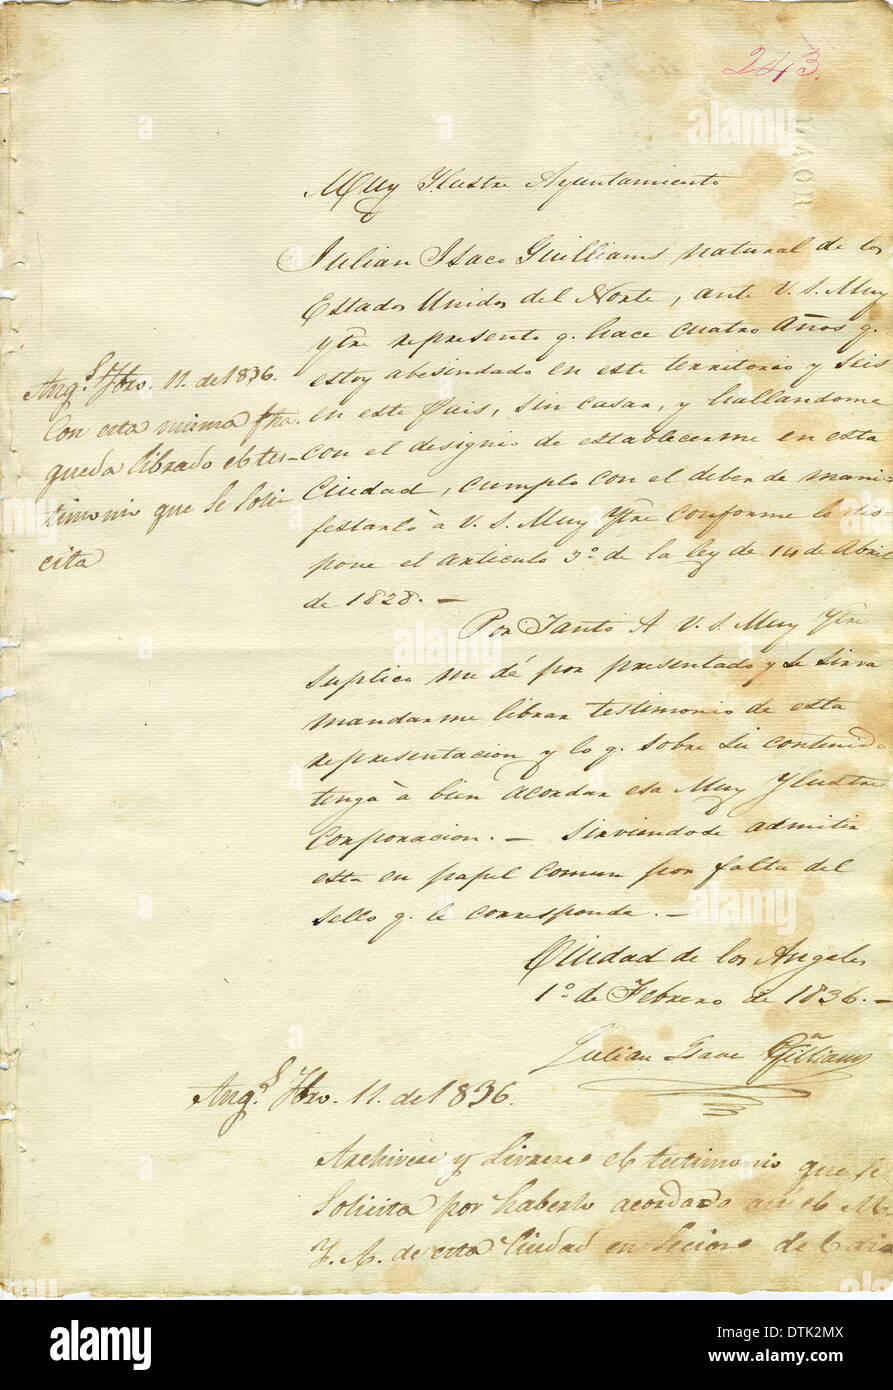 243.
Muy Ylustre Ayuntamiento
Julian Ysaco Guilliams natural de los
Estados Unidos del Norte, ante V. S. Muy
Ytre represento q. hace cuatro años q.
estoy abesindado en este territorio y seis
en este Pais, sin casar, y hallandome
con el designio de establecerme en esta
Ciudad, cumplo con el deber de mani=
festarlo à V. S. Muy Ytre conforme lo dis-
pone el articulo 3.º de la ley de 14 de Abril
de 1828. —
Por Tanto A V. S. Muy Ytre
suplico me dé por presentado y se sirva
mandarme librar testimonio de esta
representacion y lo q. sobre su contenido
tenga à bien acordar esa Muy Ylustre
Corporacion. — Sirviendose admitir
esta en papel comun por falta del
sello q. le corresponde. —
Ciudad de los Angeles
1.º de Febrero de 1836. —
Julian Isaac Williams
Ang.s Fbro. 11. de 1836.
Con esta misma fha.
queda librado el tes-
timonio que se soli
cita
Ang.s Fbro. 11. de 1836.
Archivese y librese el testimonio que se
solicita por haberlo acordado asi el M.
Y. A. de esta Ciudad en secion de
alamy
DTK2MX
alamy stock photo